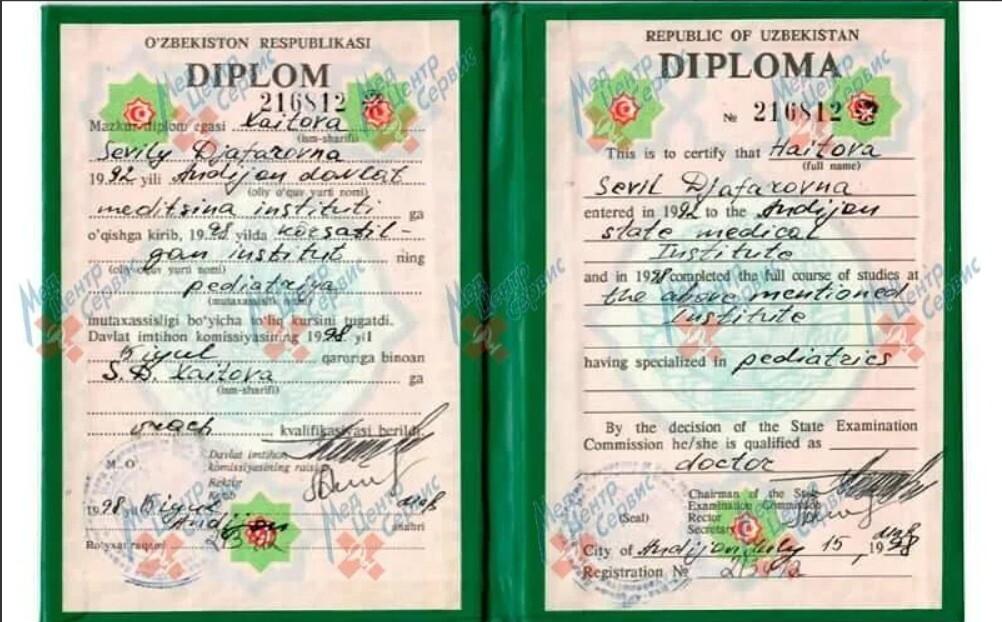 O'ZBEKISTON RESPUBLIKASI
DIPLOM
216812
Mazkur diplom egasi Xaitova
(ism-sharifi)
Sevily Djafarovna
1992 yili Andijon davlat
(oliy o'quv yurti nomi)
meditsina instituti ga
o'qishga kirib, 1998 yilda korsatil-
gan institut ning
(oliy o'quv yurti nomi)
pediatriya
(mutaxassislik nomi)
mutaxassisligi bo'yicha to'liq kursini tugatdi.
Davlat imtihon komissiyasining 1998 yil
qaroriga binoan
S.D. Xaitova ga
(ism-sharifi)
vrach kvalifikasiyasi berildi.
M. O'
Davlat imtihon
komissiyasining raisi
Rektor
Kotib
1998
Andijon shahri
Ro'yxat raqami
REPUBLIC OF UZBEKISTAN
DIPLOMA
№ 216812
This is to certify that Haitova
(full name)
Sevil Djafarovna
entered in 1992 to the Andijon
state medical
Institute
and in 1998 completed the full course of studies at
the above mentioned
Institute
having specialized in pediatrics
By the decision of the State Examination
Commission he/she is qualified as
doctor
Chairman of the State
Examination Commission
(Seal) Rector
Secretary
City of Andijon July 15, 1998
Registration №
Мед
Центр
Сервис